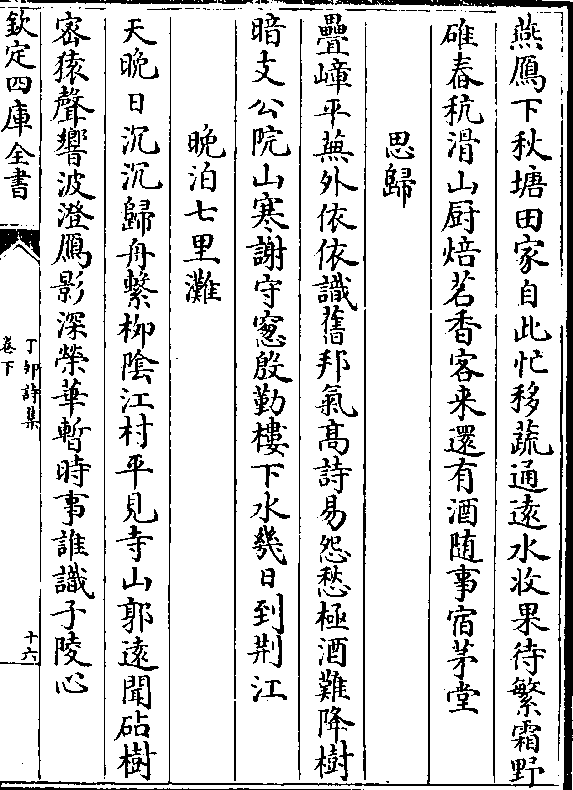 燕鴈下秋塘田家自此忙移蔬通逺水收果待繁霜野
碓舂秔滑山厨焙茗香客来還有酒随事宿茅堂
思歸
疊嶂平蕪外依依識舊邦氣髙詩易怨愁極酒難降樹
暗支公院山寒謝守窓殷勤樓下水幾日到荆江
晩泊七里灘
天晩日沉沉歸舟繫栁隂江村平見寺山郭逺聞砧樹
宻猿聲響波澄鴈影深榮華暫時事誰識子陵心
欽定四庫全書
丁卯詩集
卷下
十六